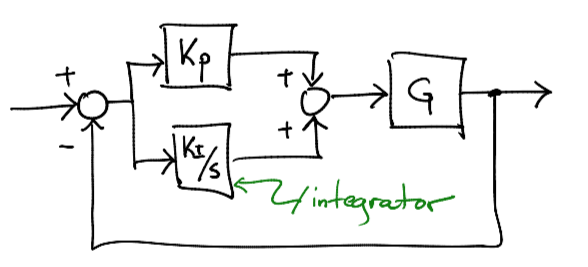 +
Kp
+
G
-
KI/s
+
integrator